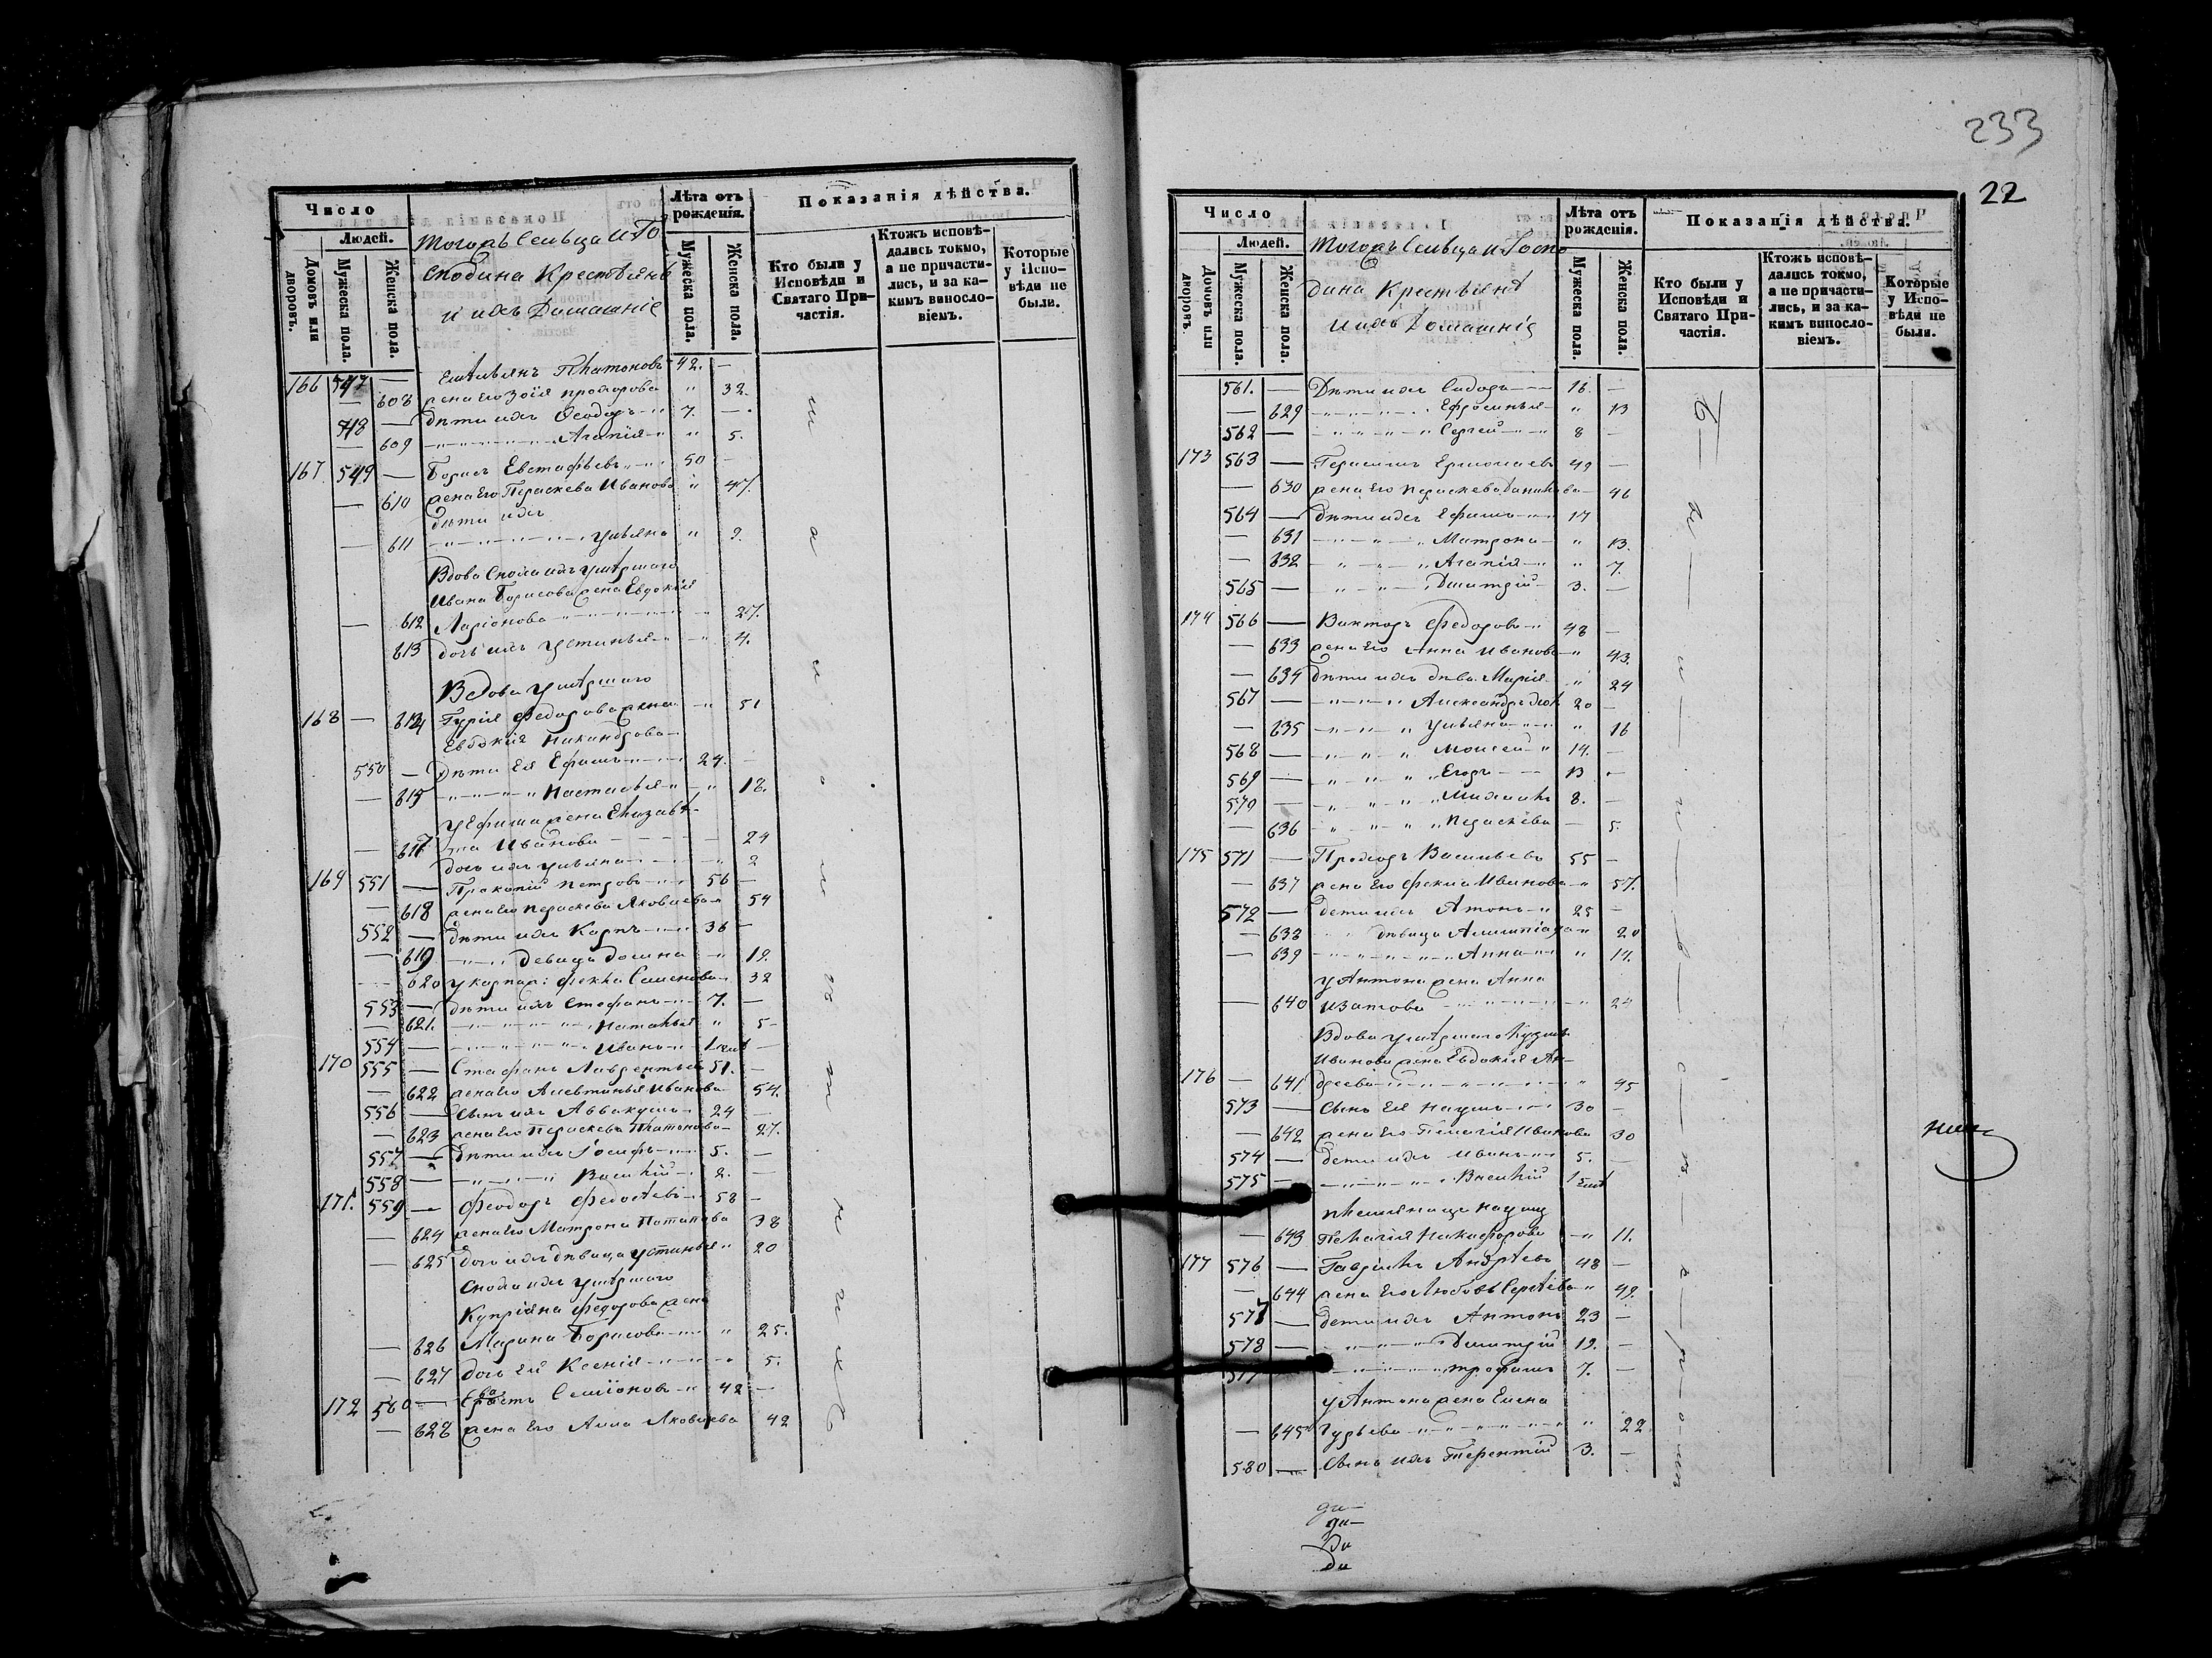 Число
Людей.
Домовъ или дворовъ.
Мужеска пола.
Женска пола.
Тогожъ Сельца и Го
сподина Крестьянѣ
и ихъ Домашніе
Лѣта отъ рожденія.
Мужеска пола.
Женска пола.
Показанія дѣйства.
Кто были у Исповѣди и Святаго Причастія.
Ктожъ исповѣдались токмо, а не причастились, и за какимъ винословіемъ.
Которые у Исповѣди не были.
166 547 — Емельянъ Платоновъ 42. —
— 608 жена его Зоія Прохорова " 32.
548 — дѣти ихъ Ѳеодоръ 7. —
— 609 Агапія " 5.
167 549 — Борисъ Евстафьевъ 50 —
— 610 жена его Параскева Иванова " 47.
дѣти ихъ
— 611 Ульяна " 9.
Вдова Сноха ихъ умершаго
Ивана Борисова жена Евдокія
— 612 Ларіонова " 27.
613 дочь ихъ Устинья " 4.
Вдова умершаго
168 — 614 Гурія Федорова жена " 51
Евдокія Никандрова
550 — Дѣти Ея Ефимъ 24. —
— 615 Настасья " 18.
у Ефима жена Елизавѣ-
— 617 та Иванова — 24
дочь ихъ Ульяна " 2
169 551 — Пракопій Петровъ 56 —
— 618 жена его Параскева Яковлева " 54
552 — дѣти ихъ Карпъ 36 —
— 619 Девица Домна " 19.
620 у Карпа ж: Фекла Семенова 32
553 — дѣти ихъ Стефанъ 7. —
— 621. Наталья " 5-
554 — Иванъ —
170 555 — Стафанъ Лаврентьевъ 51. —
— 622 жена его Алевтинья Иванова 54.
556 — Сынъ ихъ Аввакумъ 24 —
— 623 жена его Параскева Платонова 27.
557 — дѣти ихъ Іосифъ 5. —
558 — Василій 2. —
171. 559 — Феодоръ Федотьевъ 58 —
— 624 жена его Матрона Потапова 38
— 625 дочь ихъ дѣвица Устинья " 20
Сноха ихъ умершаго
Купріяна Федорова жена
— 626 Марина Борисова " 25.
— 627 дочь Ея Ксенія 5.
172 560 — Семіоновъ 42 —
— 628 жена Его Анна Яковлева 42
233
22
Число
Людей.
Домовъ или дворовъ.
Мужеска пола.
Женска пола.
Тогожъ Сельца и Госпо
дина Крестьянѣ
и ихъ Домашніе
Лѣта отъ рожденія.
Мужеска пола.
Женска пола.
Показанія дѣйства.
Кто были у Исповѣди и Святаго Причастія.
Ктожъ исповѣдались токмо, а не причастились, и за какимъ винословіемъ.
Которые у Исповѣди не были.
561. — Дѣти ихъ Сидоръ 16 —
— 629 Ефросинья " 13
562 — Сергей 8 —
173 563 — Герасимъ Ермолаевъ 49 —
— 630 жена Его Параскева Данилова — 46
564 — дѣти ихъ Ефимъ 17
— 631 Матрона " 13.
— 632 Агапія " 7.
565 — Дмитрій 3. —
174 566 — Викторъ Федоровъ 48 —
— 633 жена Его Анна Иванова " 43.
— 634 дѣти ихъ дѣва. Марія " 24
567 — Александръ 20 —
— 635 Ульяна " 16
568 — Моисей 14. —
569 — Егоръ 13 —
570 — Михаилъ 8. —
— 636 Параскева — 5.
175 571 — Прохоръ Васильевъ 55 —
— 637 жена Его Фекла Иванова " 57.
572 — дети ихъ Антонъ 25 —
— 638 дѣвица Алимпіада " 20
— 639 Анна " 17.
у Антона жена Анна
— 640 Изатова " 24
Вдова умершаго Кузмы
Иванова жена Евдокія Ан-
176 — 641 дреева " 45
573 — Сынъ Ея Наумъ 30 —
— 642 жена Его Пелагія Иванова 30
574 — дети ихъ Иванъ 5. —
575 — Василій
племянница Науму
— 643 Пелагія Никифорова " 11.
177 576 — Гаврилъ Андреевъ 48 —
— 644 жена Его Любовь Сергѣева " 49.
577 — дети ихъ Антонъ 23 —
578 — Дмитрій 19. —
Трофимъ 7. —
у Антона жена Елена
— 645 Гурьева " 22
580 — Сынъ ихъ Терентій 3. —